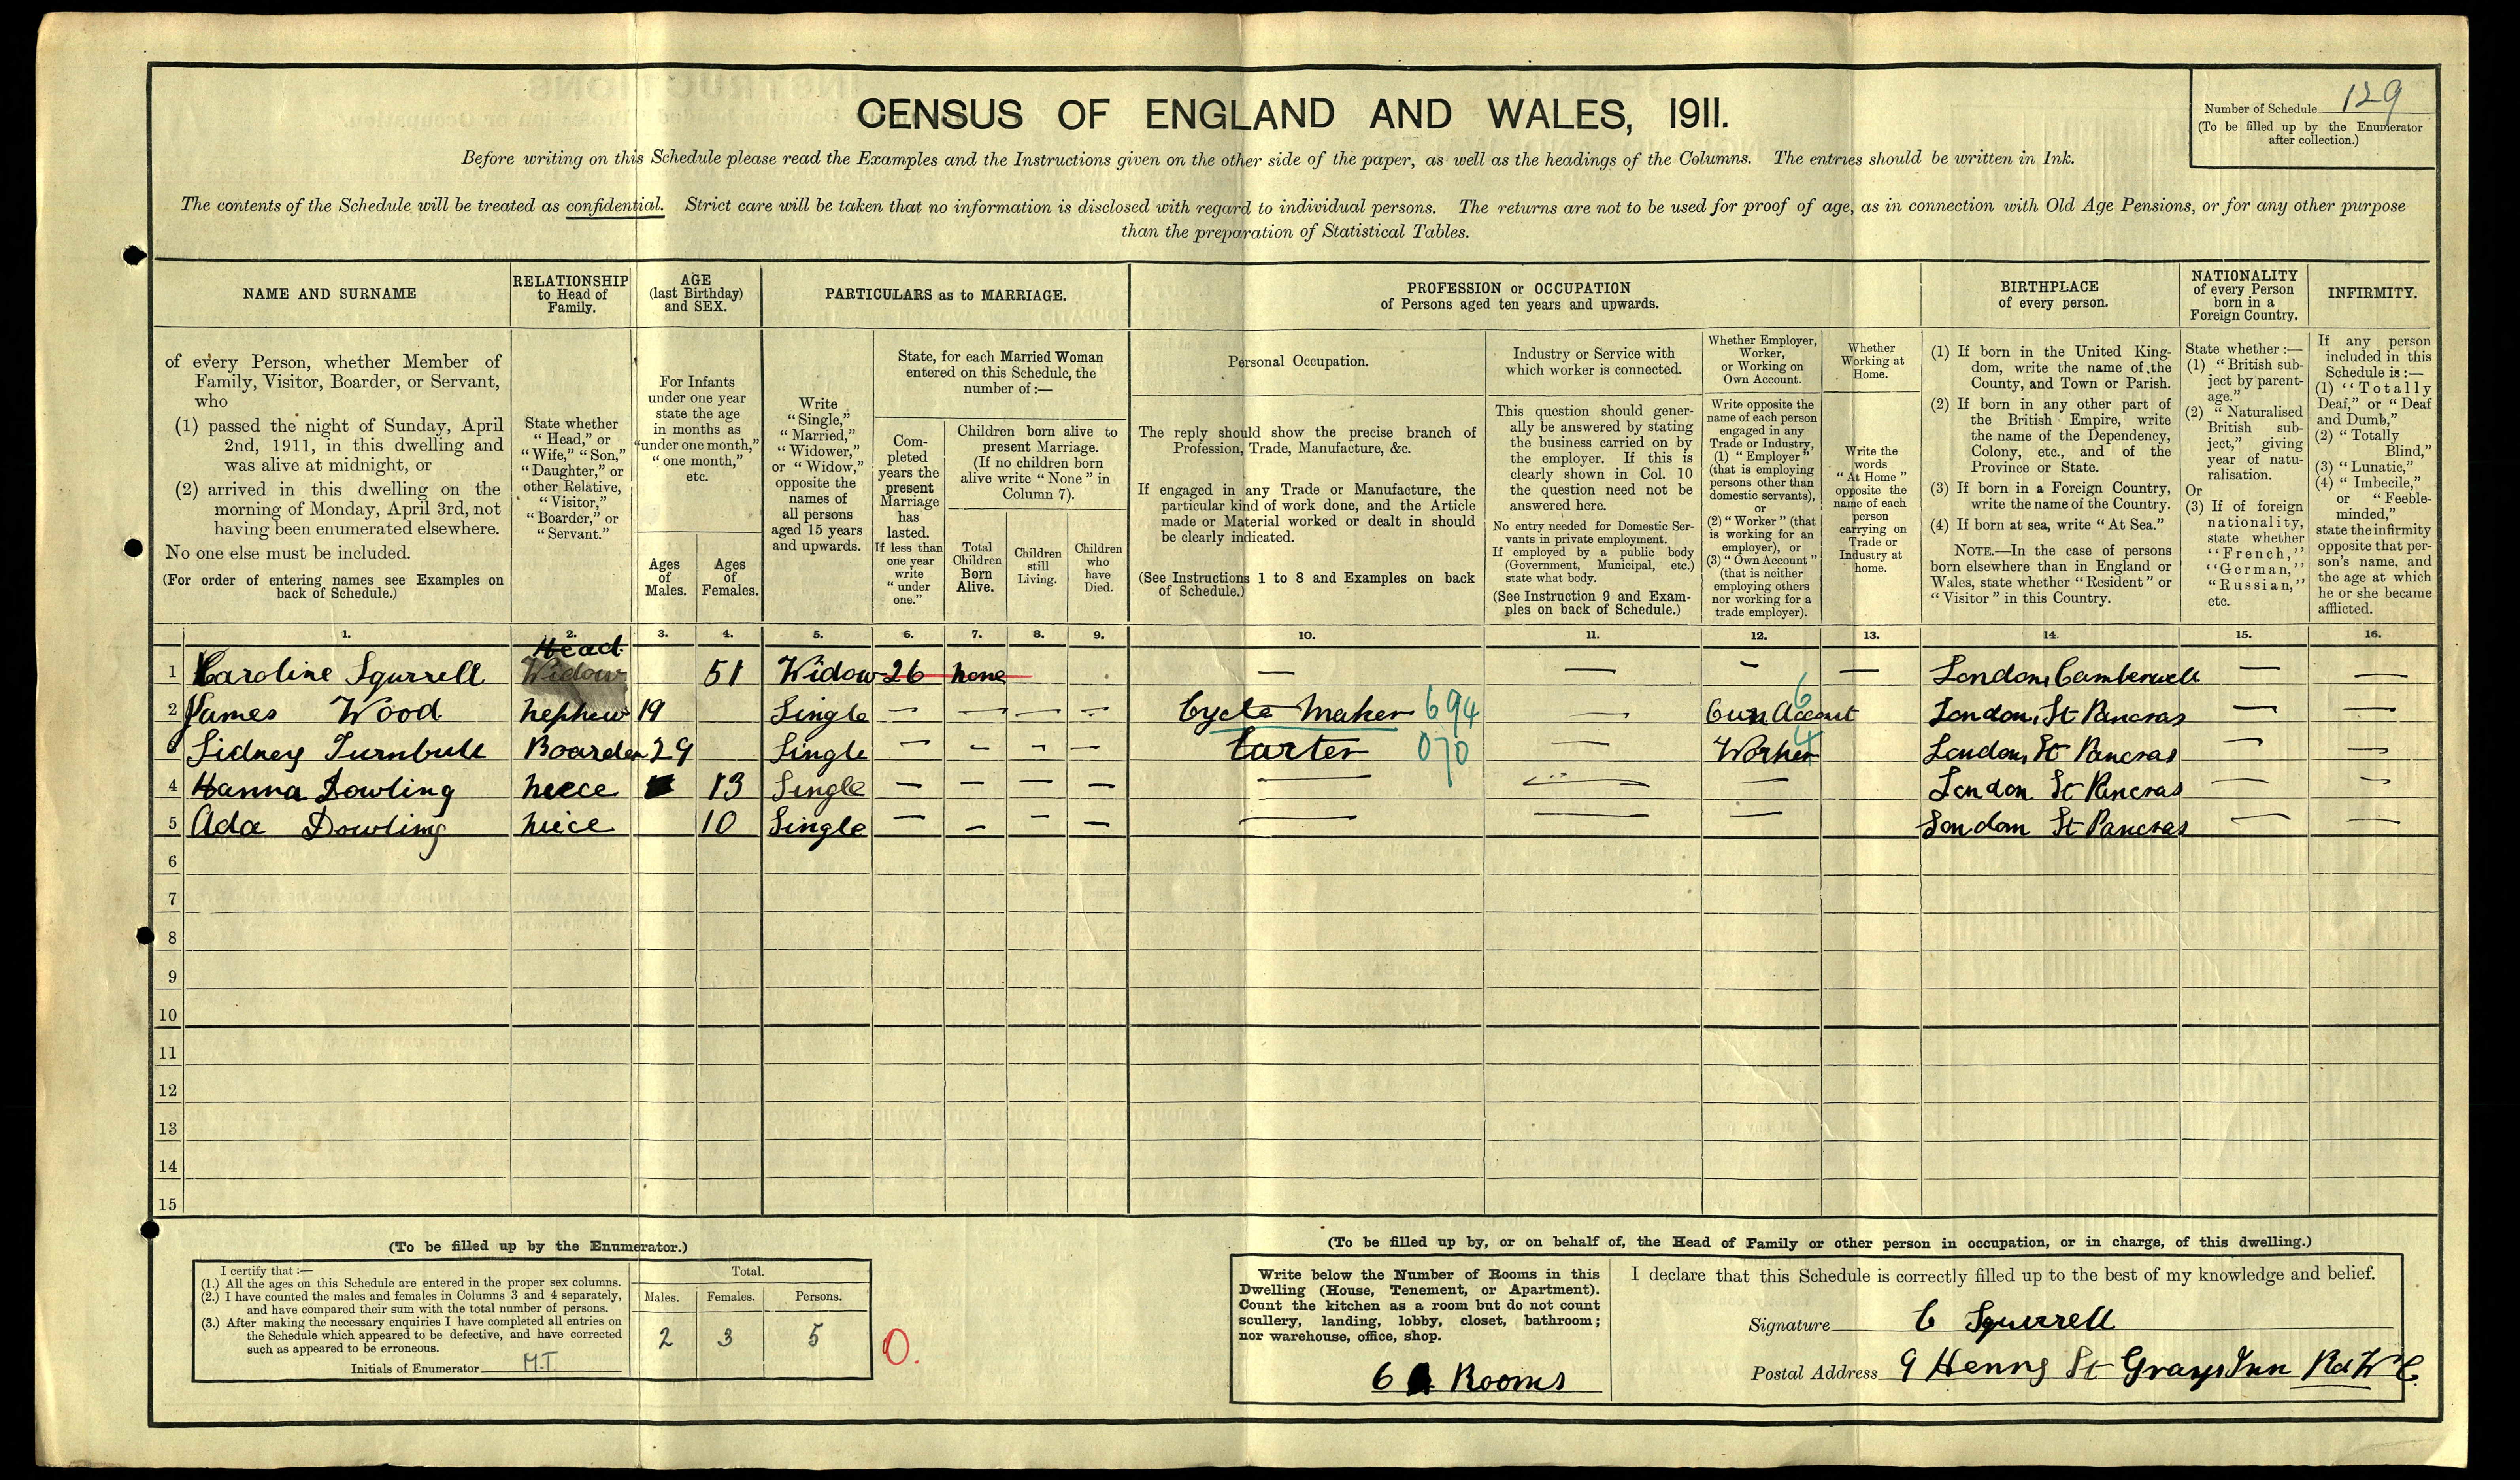 CENSUS OF ENGLAND AND WALES, 1911.
Number of Schedule 129
(To be filled up by the Enumerator
after collection.)
Before writing on this Schedule please read the Examples and the Instructions given on the other side of the paper, as well as the headings of the Columns. The entries should be written in Ink.
The contents of the Schedule will be treated as confidential. Strict care will be taken that no information is disclosed with regard to individual persons. The returns are not to be used for proof of age, as in connection with Old Age Pensions, or for any other purpose
than the preparation of Statistical Tables.
NAME AND SURNAME
of every Person, whether Member of
Family, Visitor, Boarder, or Servant,
who
(1) passed the night of Sunday, April
2nd, 1911, in this dwelling and
was alive at midnight, or
(2) arrived in this dwelling on the
morning of Monday, April 3rd, not
having been enumerated elsewhere.
No one else must be included.
(For order of entering names see Examples on
back of Schedule.)
RELATIONSHIP
to Head of
Family.
State whether
"Head," or
"Wife," "Son,"
"Daughter," or
other Relative,
"Visitor,"
"Boarder," or
"Servant."
AGE
(last Birthday)
and SEX.
For Infants
under one year
state the age
in months as
"under one month,"
"one month,"
etc.
Ages
of
Males.
Ages
of
Females.
PARTICULARS as to MARRIAGE.
Write
"Single,"
"Married,"
"Widower,"
or "Widow,"
opposite the
names of
all persons
aged 15 years
and upwards.
State, for each Married Woman
entered on this Schedule, the
number of:—
Com-
pleted
years the
present
Marriage
has
lasted.
If less than
one year
write
"under
one."
Children born alive to
present Marriage.
(If no children born
alive write "None" in
Column 7).
Total
Children
Born
Alive.
Children
still
Living.
Children
who
have
Died.
PROFESSION or OCCUPATION
of Persons aged ten years and upwards.
Personal Occupation.
The reply should show the precise branch of
Profession, Trade, Manufacture, &c.
If engaged in any Trade or Manufacture, the
particular kind of work done, and the Article
made or Material worked or dealt in should
be clearly indicated.
(See Instructions 1 to 8 and Examples on back
of Schedule.)
Industry or Service with
which worker is connected.
This question should gener-
ally be answered by stating
the business carried on by
the employer. If this is
clearly shown in Col. 10
the question need not be
answered here.
No entry needed for Domestic Ser-
vants in private employment.
If employed by a public body
(Government, Municipal, etc.)
state what body.
(See Instruction 9 and Exam-
ples on back of Schedule.)
Whether Employer,
Worker,
or Working on
Own Account.
Write opposite the
name of each person
engaged in any
Trade or Industry,
(1) "Employer"
(that is employing
persons other than
domestic servants),
or
(2) "Worker" (that
is working for an
employer), or
(3) "Own Account"
(that is neither
employing others
nor working for a
trade employer).
Whether
Working at
Home.
Write the
words
"At Home"
opposite the
name of each
person
carrying on
Trade or
Industry at
home.
BIRTHPLACE
of every person.
(1) If born in the United King-
dom, write the name of the
County, and Town or Parish.
(2) If born in any other part of
the British Empire, write
the name of the Dependency,
Colony, etc., and of the
Province or State.
(3) If born in a Foreign Country,
write the name of the Country.
(4) If born at sea, write "At Sea."
NOTE.—In the case of persons
born elsewhere than in England or
Wales, state whether "Resident" or
"Visitor" in this Country.
NATIONALITY
of every Person
born in a
Foreign Country.
State whether :—
(1) "British sub-
ject by parent-
age."
(2) "Naturalised
British sub-
ject," giving
year of natu-
ralisation.
Or
(3) If of foreign
nationality,
state whether
"French,"
"German,"
"Russian,"
etc.
INFIRMITY.
If any person
included in this
Schedule is :—
(1) "Totally
Deaf," or "Deaf
and Dumb,"
(2) "Totally
Blind,"
(3) "Lunatic,"
(4) "Imbecile,"
or "Feeble-
minded,"
state the infirmity
opposite that per-
son's name, and
the age at which
he or she became
afflicted.
1. 2. 3. 4. 5. 6. 7. 8. 9. 10. 11. 12. 13. 14. 15. 16.
Head
1 Caroline Squrrell Widow 51 Widow 26 none — — - — London, Camberwell — —
2 James Wood nephew 19 Single — — — — Cycle Maker 694 — Own Account 6 London, St Pancras — —
3 Sidney Turnbull Boarder 29 Single — — — — Carter 070 — Worker 4 London, St Pancras — —
4 Hanna Dowling neece 13 Single — — — — — — London St Pancras — —
5 Ada Dowling neice 10 Single — — — — — — — London St Pancras — —
6
7
8
9
10
11
12
13
14
15
(To be filled up by the Enumerator.)
I certify that :—
(1.) All the ages on this Schedule are entered in the proper sex columns.
(2.) I have counted the males and females in Columns 3 and 4 separately,
and have compared their sum with the total number of persons.
(3.) After making the necessary enquiries I have completed all entries on
the Schedule which appeared to be defective, and have corrected
such as appeared to be erroneous.
Initials of Enumerator M.T.
Total.
Males. Females. Persons.
2 3 5
0.
(To be filled up by, or on behalf of, the Head of Family or other person in occupation, or in charge, of this dwelling.)
Write below the Number of Rooms in this
Dwelling (House, Tenement, or Apartment).
Count the kitchen as a room but do not count
scullery, landing, lobby, closet, bathroom;
nor warehouse, office, shop.
6 Rooms
I declare that this Schedule is correctly filled up to the best of my knowledge and belief.
Signature C Squrrell
Postal Address 9 Henry St Grays Inn Rd W C.